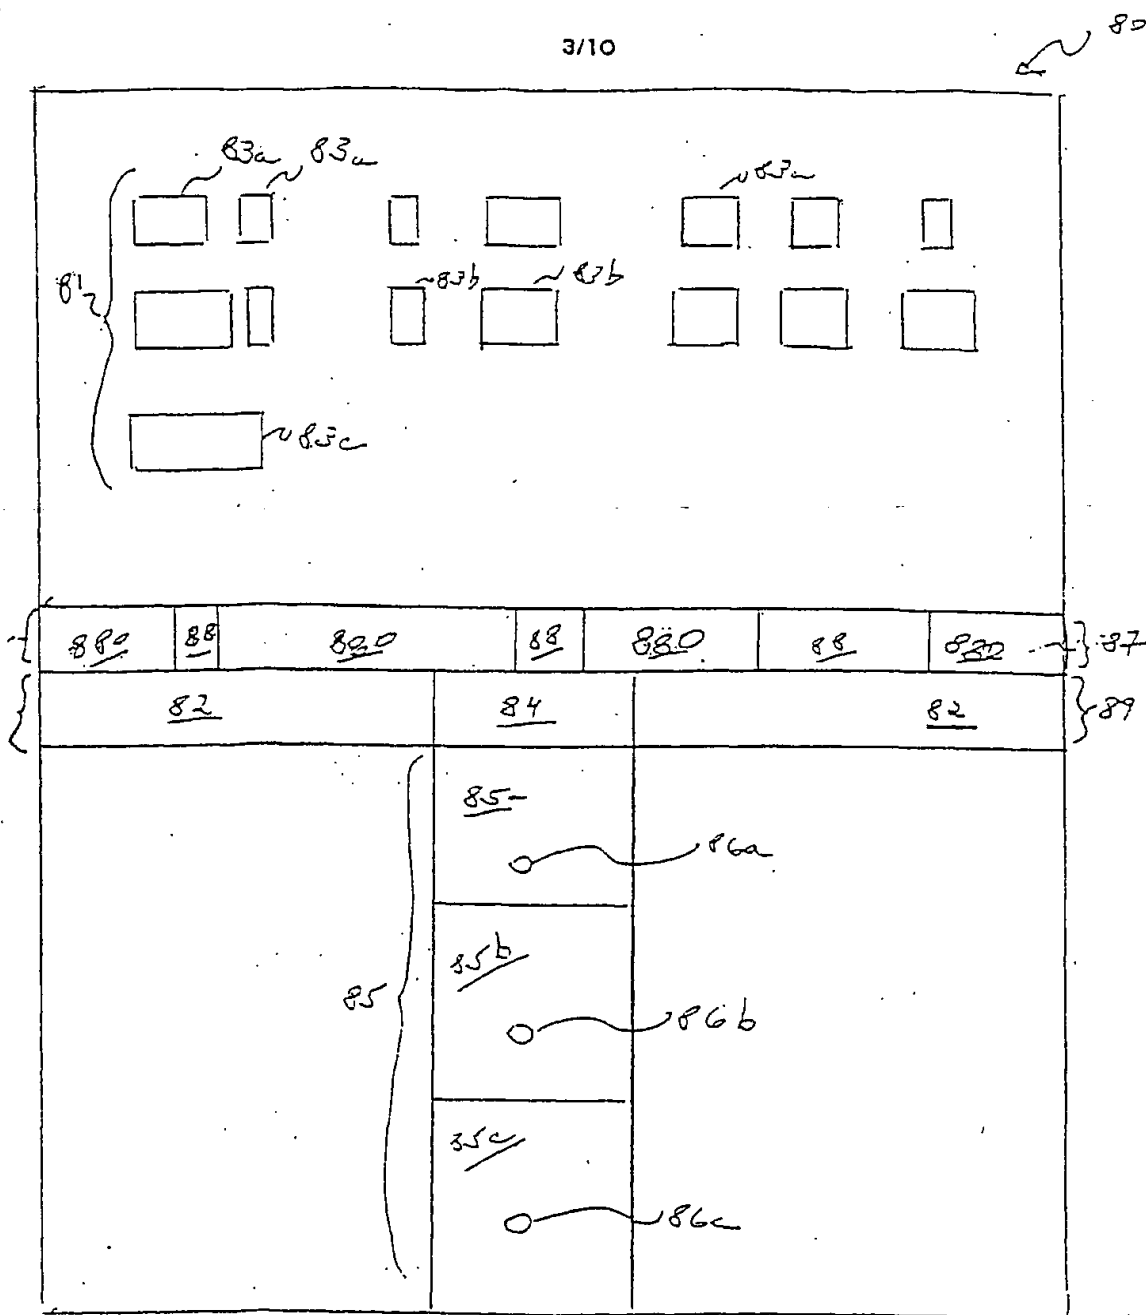 3/10
80
83a 83a 83a
81
83b 83b
83c
880 88 880 88 880 88 880 87
82 84 82 89
85
86a
85b
85
86b
85c
86c